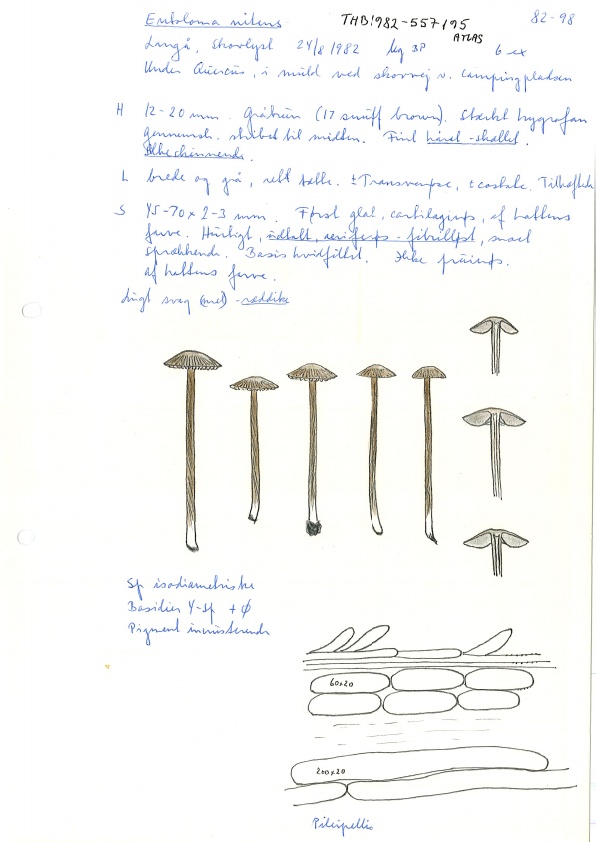 Entoloma nitens THB1982-557/95 82-98
ATLAS
Langå, Skovlyst 24/8 1982 leg BP 6 ex
Under Quercus, i muld ved skovvej v. campingpladsen
H 12-20 mm. Gråbrun (17 snuff brown). Stærkt hygrofan
gennemsk. stribet til midten. Fint håret-skællet.
Ikke skinnende.
L brede og grå, ret tætte. ± Transvenøse, ± costate. Tilhæftede
S 45-70 x 2-3 mm. Først glat, cartilaginøs, af hattens
farve. Hurtigt, sølvfibrilløst, snart
sprækkende. Basis hvidfiltet. Ikke pruinøs.
af hattens farve.
Lugt svag (mel) - ræddike
Sp isodiametriske
Basidier 4-sp + ø
Pigment inkrusterende
60x20
200x20
Pileipellis